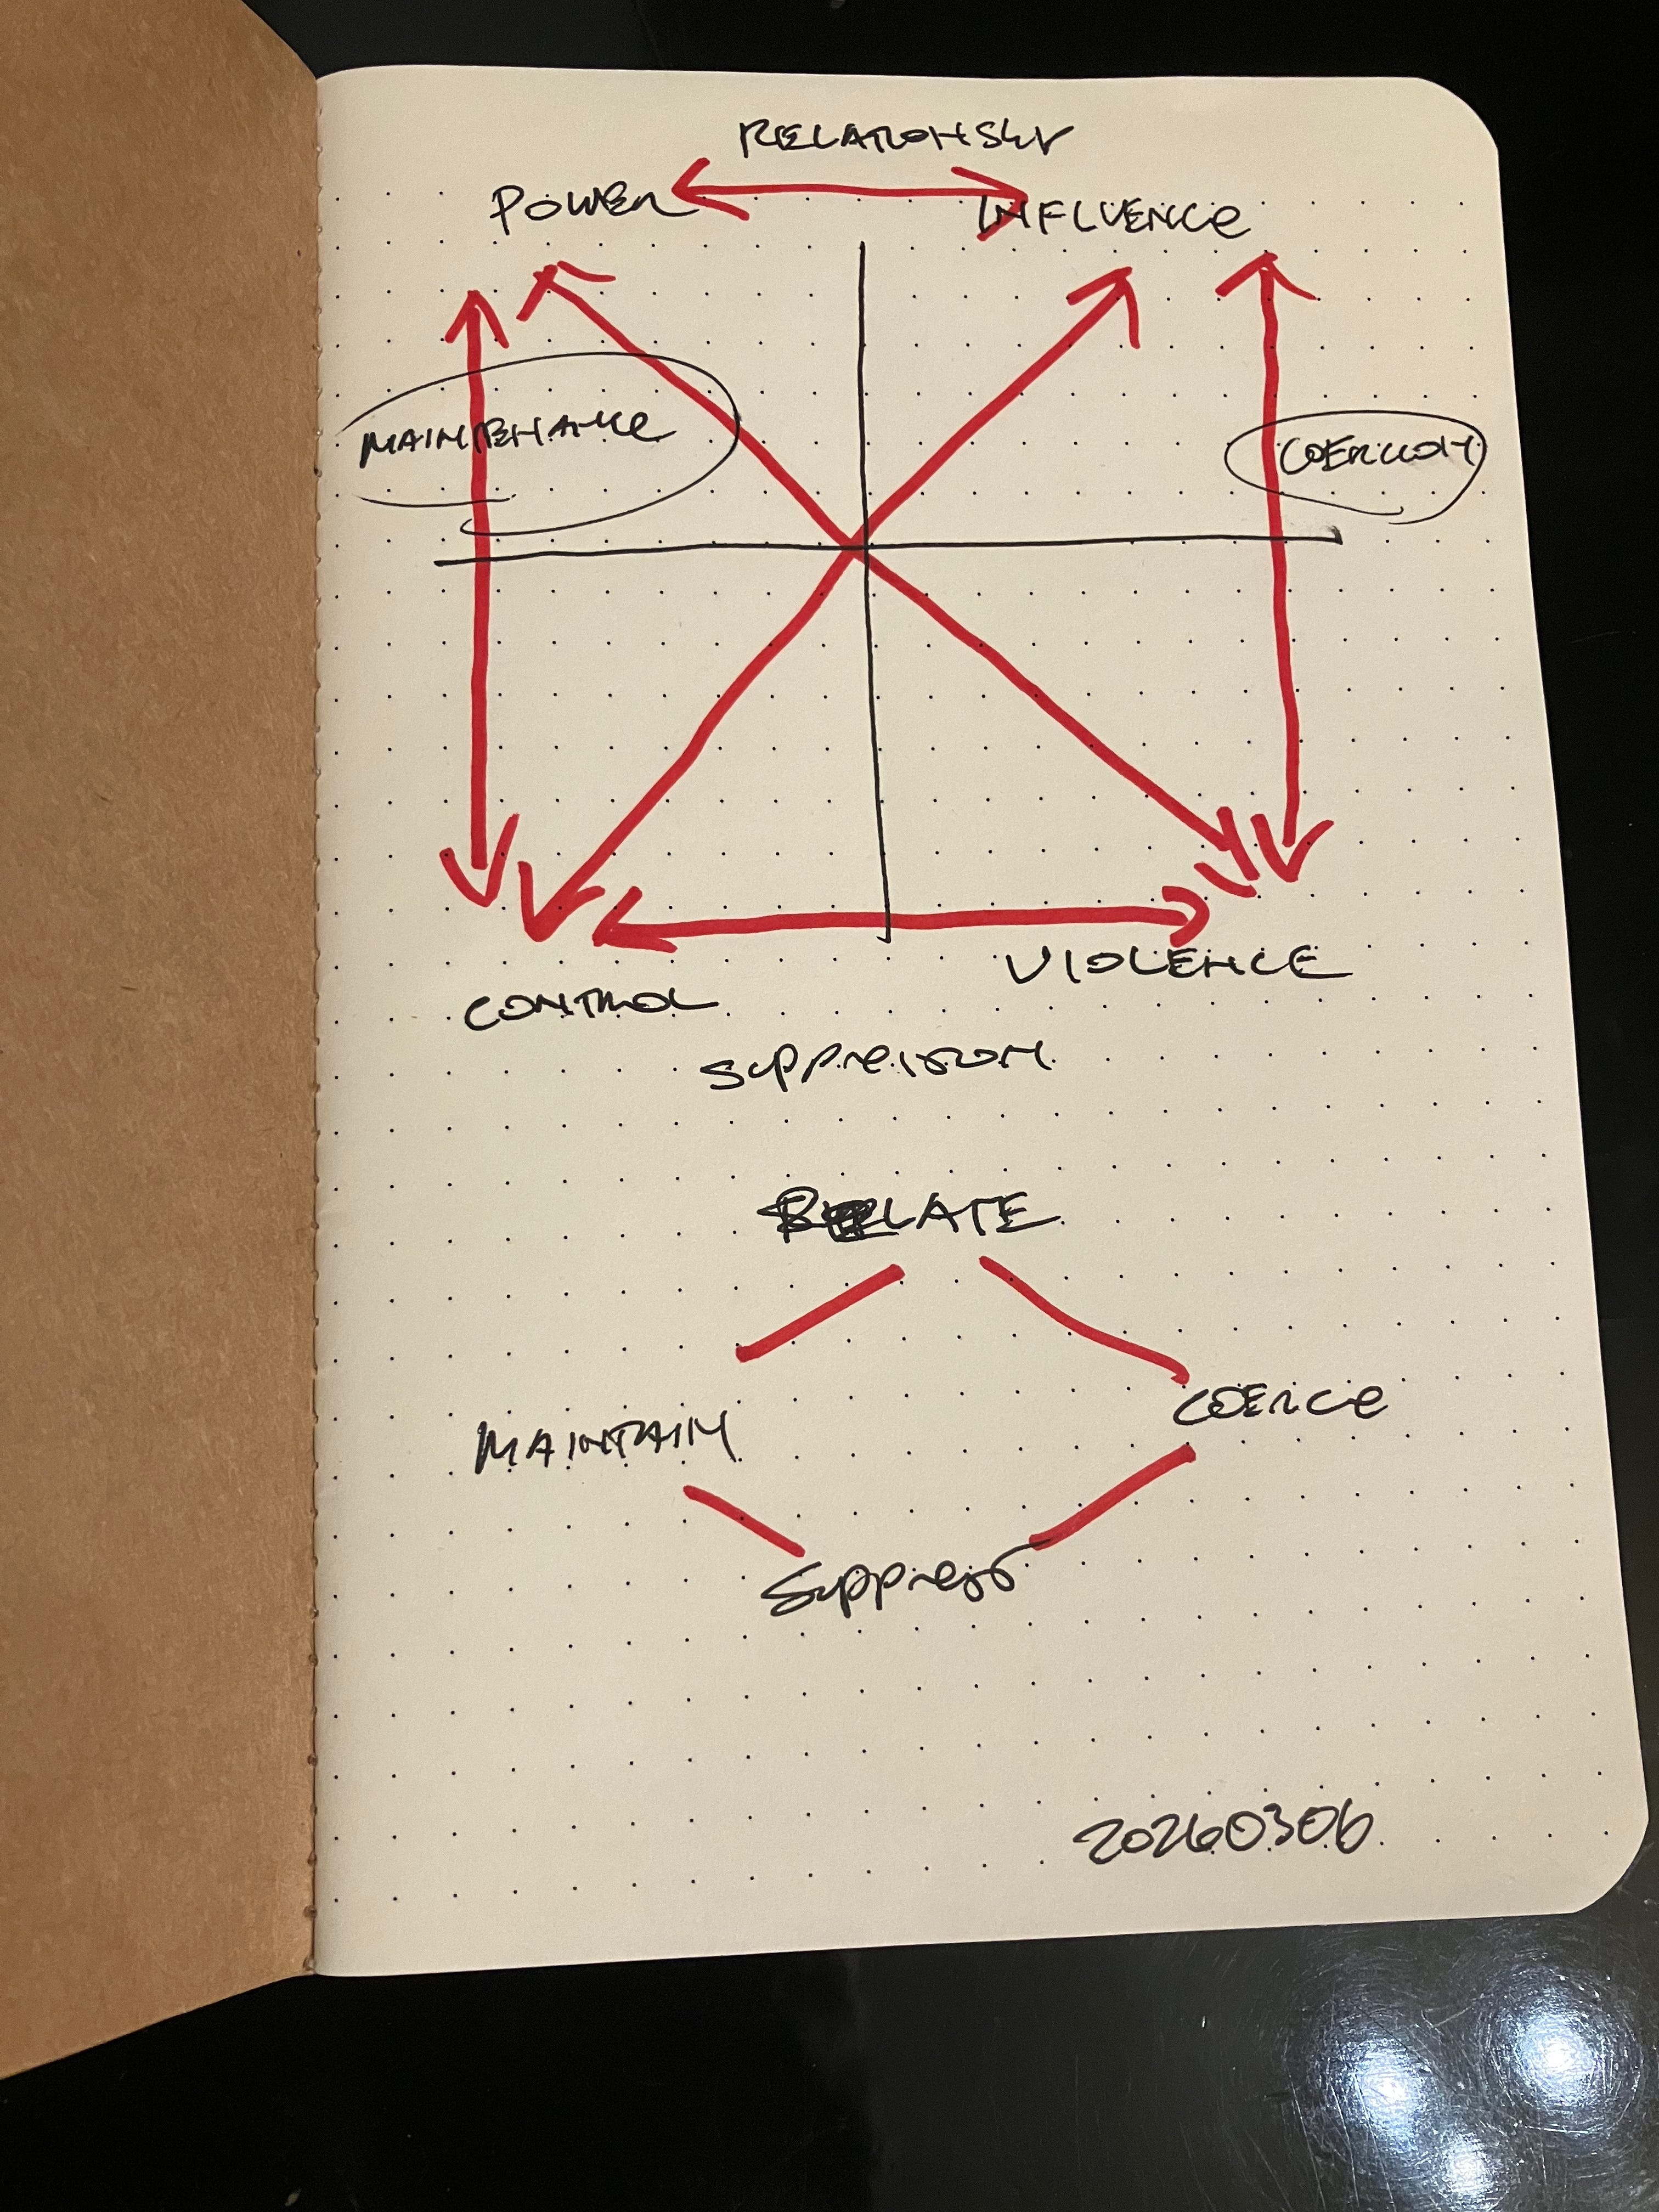 RELATIONSHIP
POWER INFLUENCE
MAINTENANCE COERCION
VIOLENCE
CONTROL
SUPPRESSION
RELATE
COERCE
MAINTAIN
Suppress
20260306